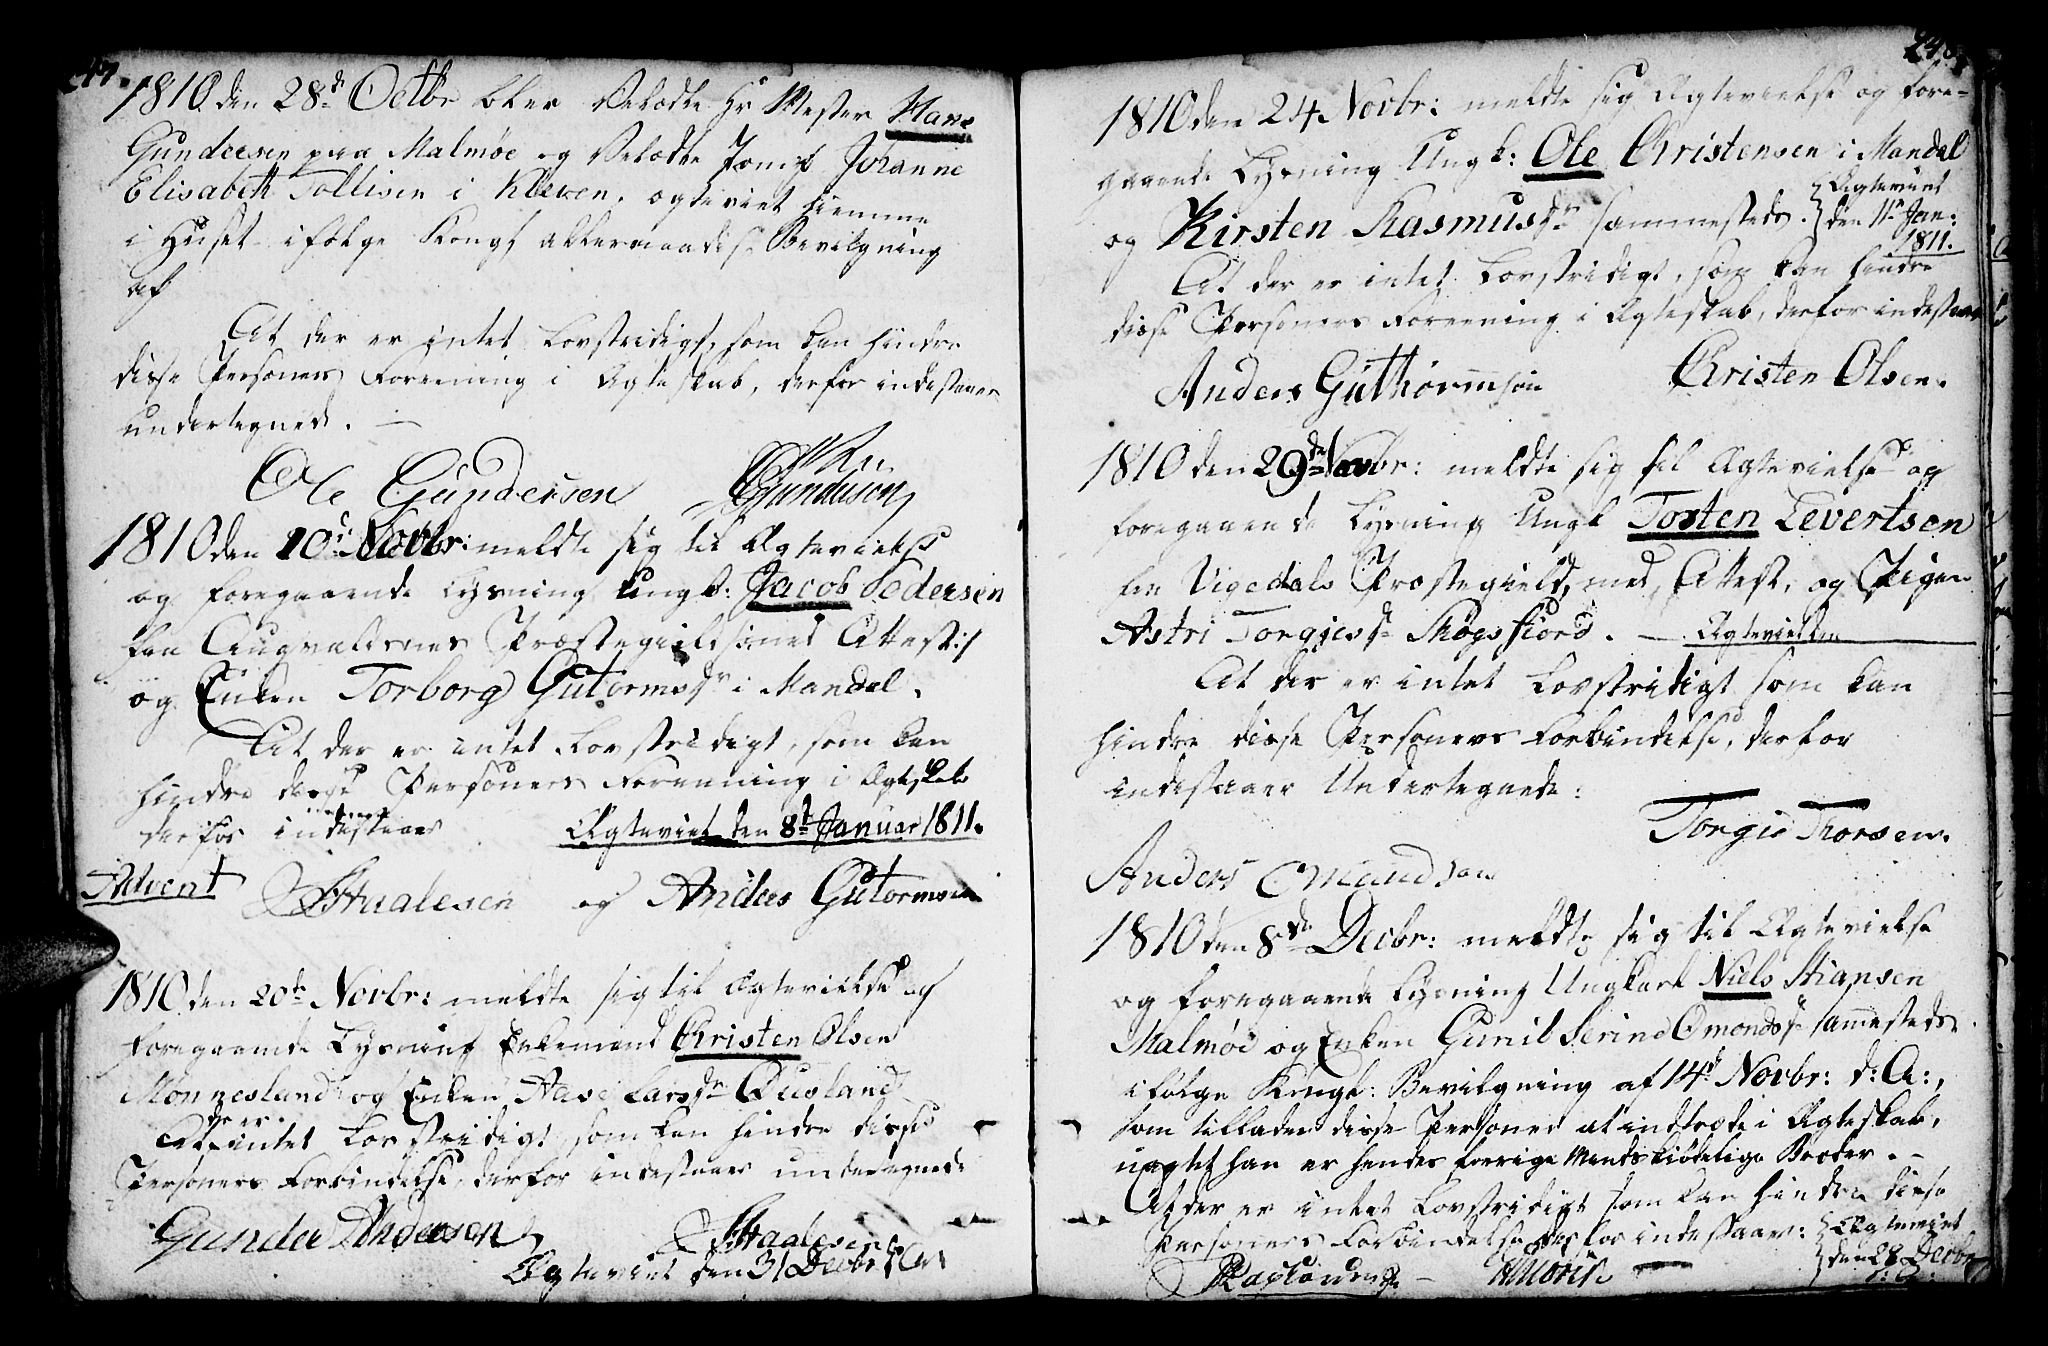 247.
1810 den 28de Octbr blev Velædle Hr Mester Hans
Gundersen paa Malmøe og Velædle Jomf. Johanne
Elisabeth Tollisen i Kleven, ægteviet hiemme
i Huset ifølge Kongl allernaadigste Bevilgning
af
At der er intet Lovstridigt, som kan hindre
disse Personers Foreening i Ægteskab, derfor indestaaer
undertegnede.
Ole Gundersen Gundersen
1810 den 10de Novbr: meldte sig til Ægtevielse
og foregaaende Lysning Ungk: Jacob Pedersen
fra Augvaldsnes Præstegield /: med Attest :/
og Enken Torborg Gutormsdr i Mandal.
At der er intet Lovstridigt, som kan
hindre disse Personers Foreening i Ægteskab
derfor indestaaer Ægteviet den 8de Januar 1811.
Advent Staalesen og Anders Gutormsen
1810 den 20de Novbr: meldte sig til Ægtevielse og
foregaaende Lysning Enkemand Christen Olsen
Monnesland og Enken Aase Larsdr Duusland
At der er intet Lovstridigt, som kan hindre disse
Personers Forbindelse, derfor indestaaer undertegnede
Gunder Andersen Staalesen
Ægteviet den 31 Decbr d: A:
248.
1810 den 24 Novbr: meldte sig Ægtevielse og fore-
gaaende Lysning Ungk: Ole Christensen i Mandal
og Kirsten Rasmusdr sammesteds. Ægteviet
den 11te Jan:
1811.
At der er intet Lovstridigt, som kan hindre
disse Personers Foreening i Ægteskab, derfor indestaaer
Anders Guthormsøn Christen Olsen.
1810 den 29de Novbr: meldte sig til Ægtevielse og
foregaaende Lysning Ungk Tosten Levertsen
fra Vigedals Præstegield, med Attest, og Pigen
Astri Torgiesdr Skogsfiord. — Ægteviet den
At der er intet Lovstridigt som kan
hindre disse Personers Forbindelse, derfor
indestaaer Undertegnede:
Torgie Thorsen.
Anders Omundsøn
1810 den 8de Decbr: meldte sig til Ægtevielse
og foregaaende Lysning Ungkarl Niels Stiansen
Malmøe og Enken Gunil Serine Omondsdr sammesteds
ifølge Kongl: Bevilgning af 14de Novbr: d: A:,
som tillader disse Personer at indtræde i Ægteskab,
uagtet han er hendes forrige Mands kiødelige Broder. —
At der er intet Lovstridigt som kan hindre disse
Personers Forbindelse derfor indestaaer: Ægteviet
den 28 Decbr
d: A: